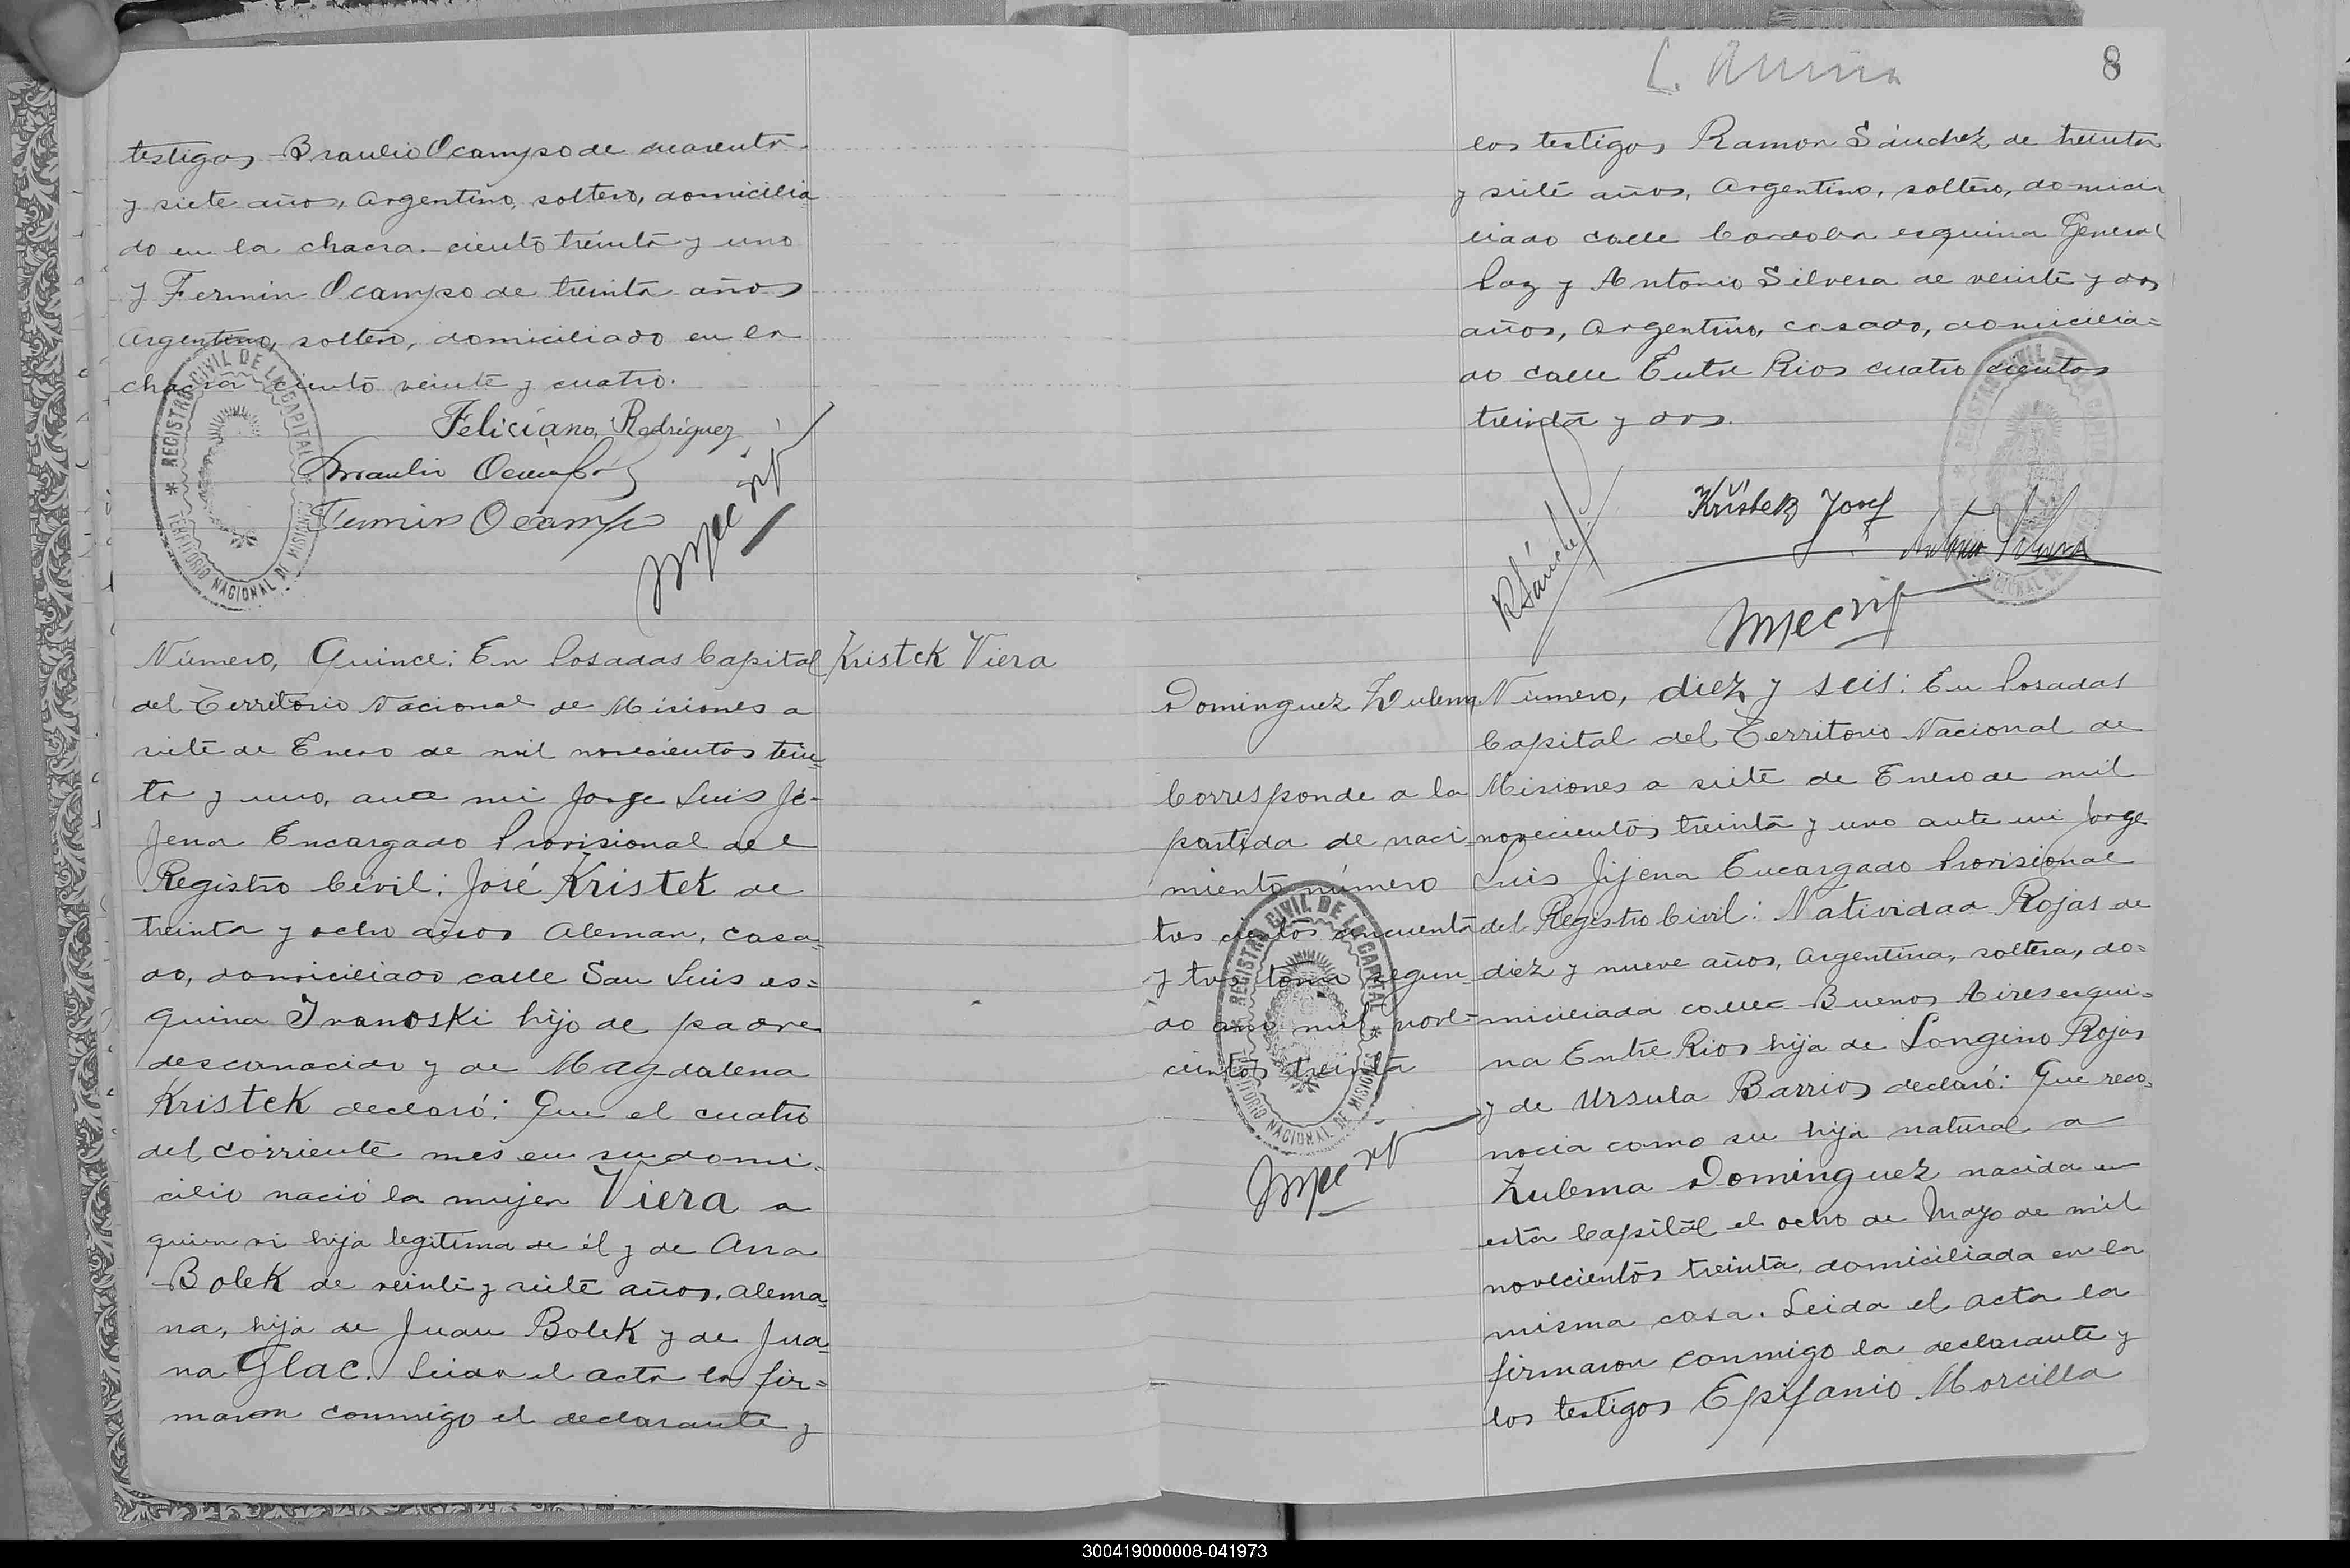 testigos Braulio Ocampo de cuarenta
y siete años, Argentino, soltero, domicilia
do en la chacra ciento treinta y uno
y Fermin Ocampo de treinta años
Argentino, soltero, domiciliado en la
chacra ciento veinte y cuatro.
REGISTRO CIVIL DE LA CAPITAL
TERRITORIO NACIONAL DE MISIONES
Feliciano Rodriguez
Braulio Ocampo
Fermin Ocampo
Número, Quince: En Posadas Capital
Kristek Viera
del Territorio Nacional de Misiones a
siete de Enero de mil novecientos trein
ta y uno, ante mi Jorge Luis Ji-
jena Encargado Provisional del
Registro Civil: José Kristek de
treinta y ocho años Aleman, casa=
do, domiciliado calle San Luis es=
quina Ivanoski hijo de padre
desconocido y de Magdalena
Kristek declaró: Que el cuatro
del corriente mes en su domi=
cilio nació la mujer Viera a
quien vi hija legitima de él y de Ana
Bolek de veinte y siete años, alema=
na, hija de Juan Bolek y de Jua=
na Glac. Leida el acta la fir=
maron conmigo el declarante y
8
los testigos Ramon Sánchez de treinta
y siete años, Argentino, soltero, domici
liado calle Cordoba esquina General
Paz y Antonio Silvera de veinte y dos
años, Argentino, casado, domicilia=
do calle Entre Rios cuatro cientos
treinta y dos.
R Sánchez
Kristek Josef
Antonio Silvera
Dominguez Zulema
Número, diez y seis: En Posadas
Capital del Territorio Nacional de
Misiones a siete de Enero de mil
novecientos treinta y uno ante mi Jorge
Luis Jijena Encargado Provisional
del Registro Civil: Natividad Rojas de
diez y nueve años, Argentina, soltera, do=
miciliada calle Buenos Aires esqui=
na Entre Rios hija de Longino Rojas
y de Ursula Barrios declaró: Que reco=
nocia como su hija natural a
Zulema Dominguez nacida en
esta Capital el ocho de Mayo de mil
novecientos treinta, domiciliada en la
misma casa. Leida el acta la
firmaron conmigo la declarante y
los testigos Epifanio Morcilla
Corresponde a la
partida de naci
miento número
tres cientos cincuenta
y tres tomo segun
do año mil nove=
cientos treinta
REGISTRO CIVIL DE LA CAPITAL
TERRITORIO NACIONAL DE MISIONES
300419000008-041973